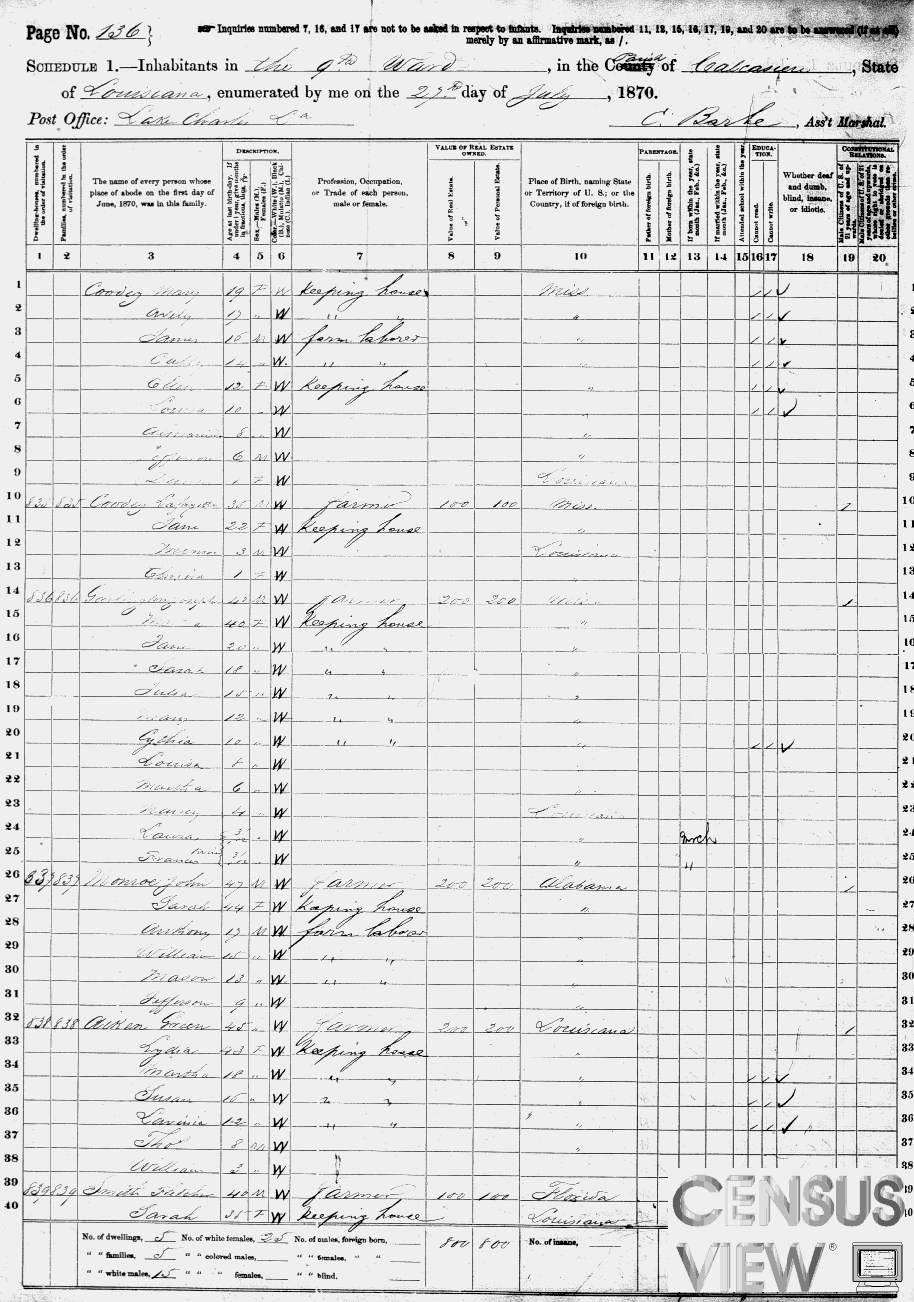 Page No. 136
Inquiries numbered 7, 16, and 17 are not to be asked in respect to infants. Inquiries numbered 11, 12, 15, 16, 17, 19, and 20 are to be answered (if at all)
merely by an affirmative mark, as /.
SCHEDULE 1.—Inhabitants in the 9th Ward, in the County Parish of Calcasieu, State
of Louisiana, enumerated by me on the 27th day of July, 1870.
Post Office: Lake Charles La
C. Barbe, Ass't Marshal.
DESCRIPTION. VALUE OF REAL ESTATE OWNED. PARENTAGE. EDUCATION. CONSTITUTIONAL RELATIONS.
Dwelling-houses, numbered in the order of visitation.
Families, numbered in the order of visitation.
The name of every person whose place of abode on the first day of June, 1870, was in this family.
Age at last birth-day. If under 1 year, give months in fractions, thus,
Sex.—Males (M.), Females (F.)
Color.—White (W.), Black (B.), Mulatto (M.), Chinese (C.), Indian (I.)
Profession, Occupation, or Trade of each person, male or female.
Value of Real Estate.
Value of Personal Estate.
Place of Birth, naming State or Territory of U. S.; or the Country, if of foreign birth.
Father of foreign birth.
Mother of foreign birth.
If born within the year, state month (Jan., Feb., &c.)
If married within the year, state month (Jan., Feb., &c.)
Attended school within the year.
Cannot read.
Cannot write.
Whether deaf and dumb, blind, insane, or idiotic.
Male Citizens of U. S. of 21 years of age and upwards.
1 2 3 4 5 6 7 8 9 10 11 12 13 14 15 16 17 18 19 20
1 Coodey Mary 19 F W Keeping house Miss. / / ✓ 1
2 17 " W " " " / / ✓ 2
3 James 16 M W farm laborer " / / ✓ 3
4 14 " W. " " " / / ✓ 4
5 12 F W Keeping house " / / ✓ 5
6 Louisa 10 " W " / / ✓ 6
7 8 " W " 7
8 Jefferson 6 M W " 8
9 1 F W Louisiana 9
10 835 835 Coodey Lafayette 35 M W farmer 100 100 Miss. 1 10
11 Jane 22 F W Keeping house " 11
12 3 M W Louisiana 12
13 1 F W " 13
14 836 836 Joseph 42 M W farmer 200 200 Miss 1 14
15 40 F W Keeping house " 15
16 Jane 20 " W " " " 16
17 Sarah 18 " W " " " 17
18 Julia 15 " W " " " 18
19 Mary 12 " W " " " 19
20 Cythia 10 " W " " " / / ✓ 20
21 Louisa 8 " W " 21
22 Martha 6 " W " 22
23 Nancy 4 " W Louisiana 23
24 Laura 3/12 " W " March 24
25 Frances twins 3/12 " W " " 25
26 837 837 Monroe John 47 M W farmer 200 200 Alabama 1 26
27 Sarah 44 F W Keeping house " 27
28 Anthony 17 M W farm laborer " 28
29 William 15 " W " " " 29
30 Mason 13 " W " " " 30
31 Jefferson 9 " W " 31
32 838 838 Aiken Green 45 " W farmer 200 200 Louisiana 1 32
33 Lydia 43 F W Keeping house " 33
34 Martha 18 " W " " " / / ✓ 34
35 Susan 16 " W " " / / ✓ 35
36 Lavinia 12 " W " " " / / ✓ 36
37 Tho 8 M W " 37
38 William 2 " W 38
39 839 839 Smith Fletcher 40 M W farmer 100 100 Florida 39
40 Sarah 35 F W Keeping house Louisiana 40
No. of dwellings, 5 No. of white females, 25 No. of males, foreign born, 800 800 No. of insane,
" " families, 5 " " colored males, " " females, " "
" " white males, 15 " " " females, " " blind.
CENSUS
VIEW®